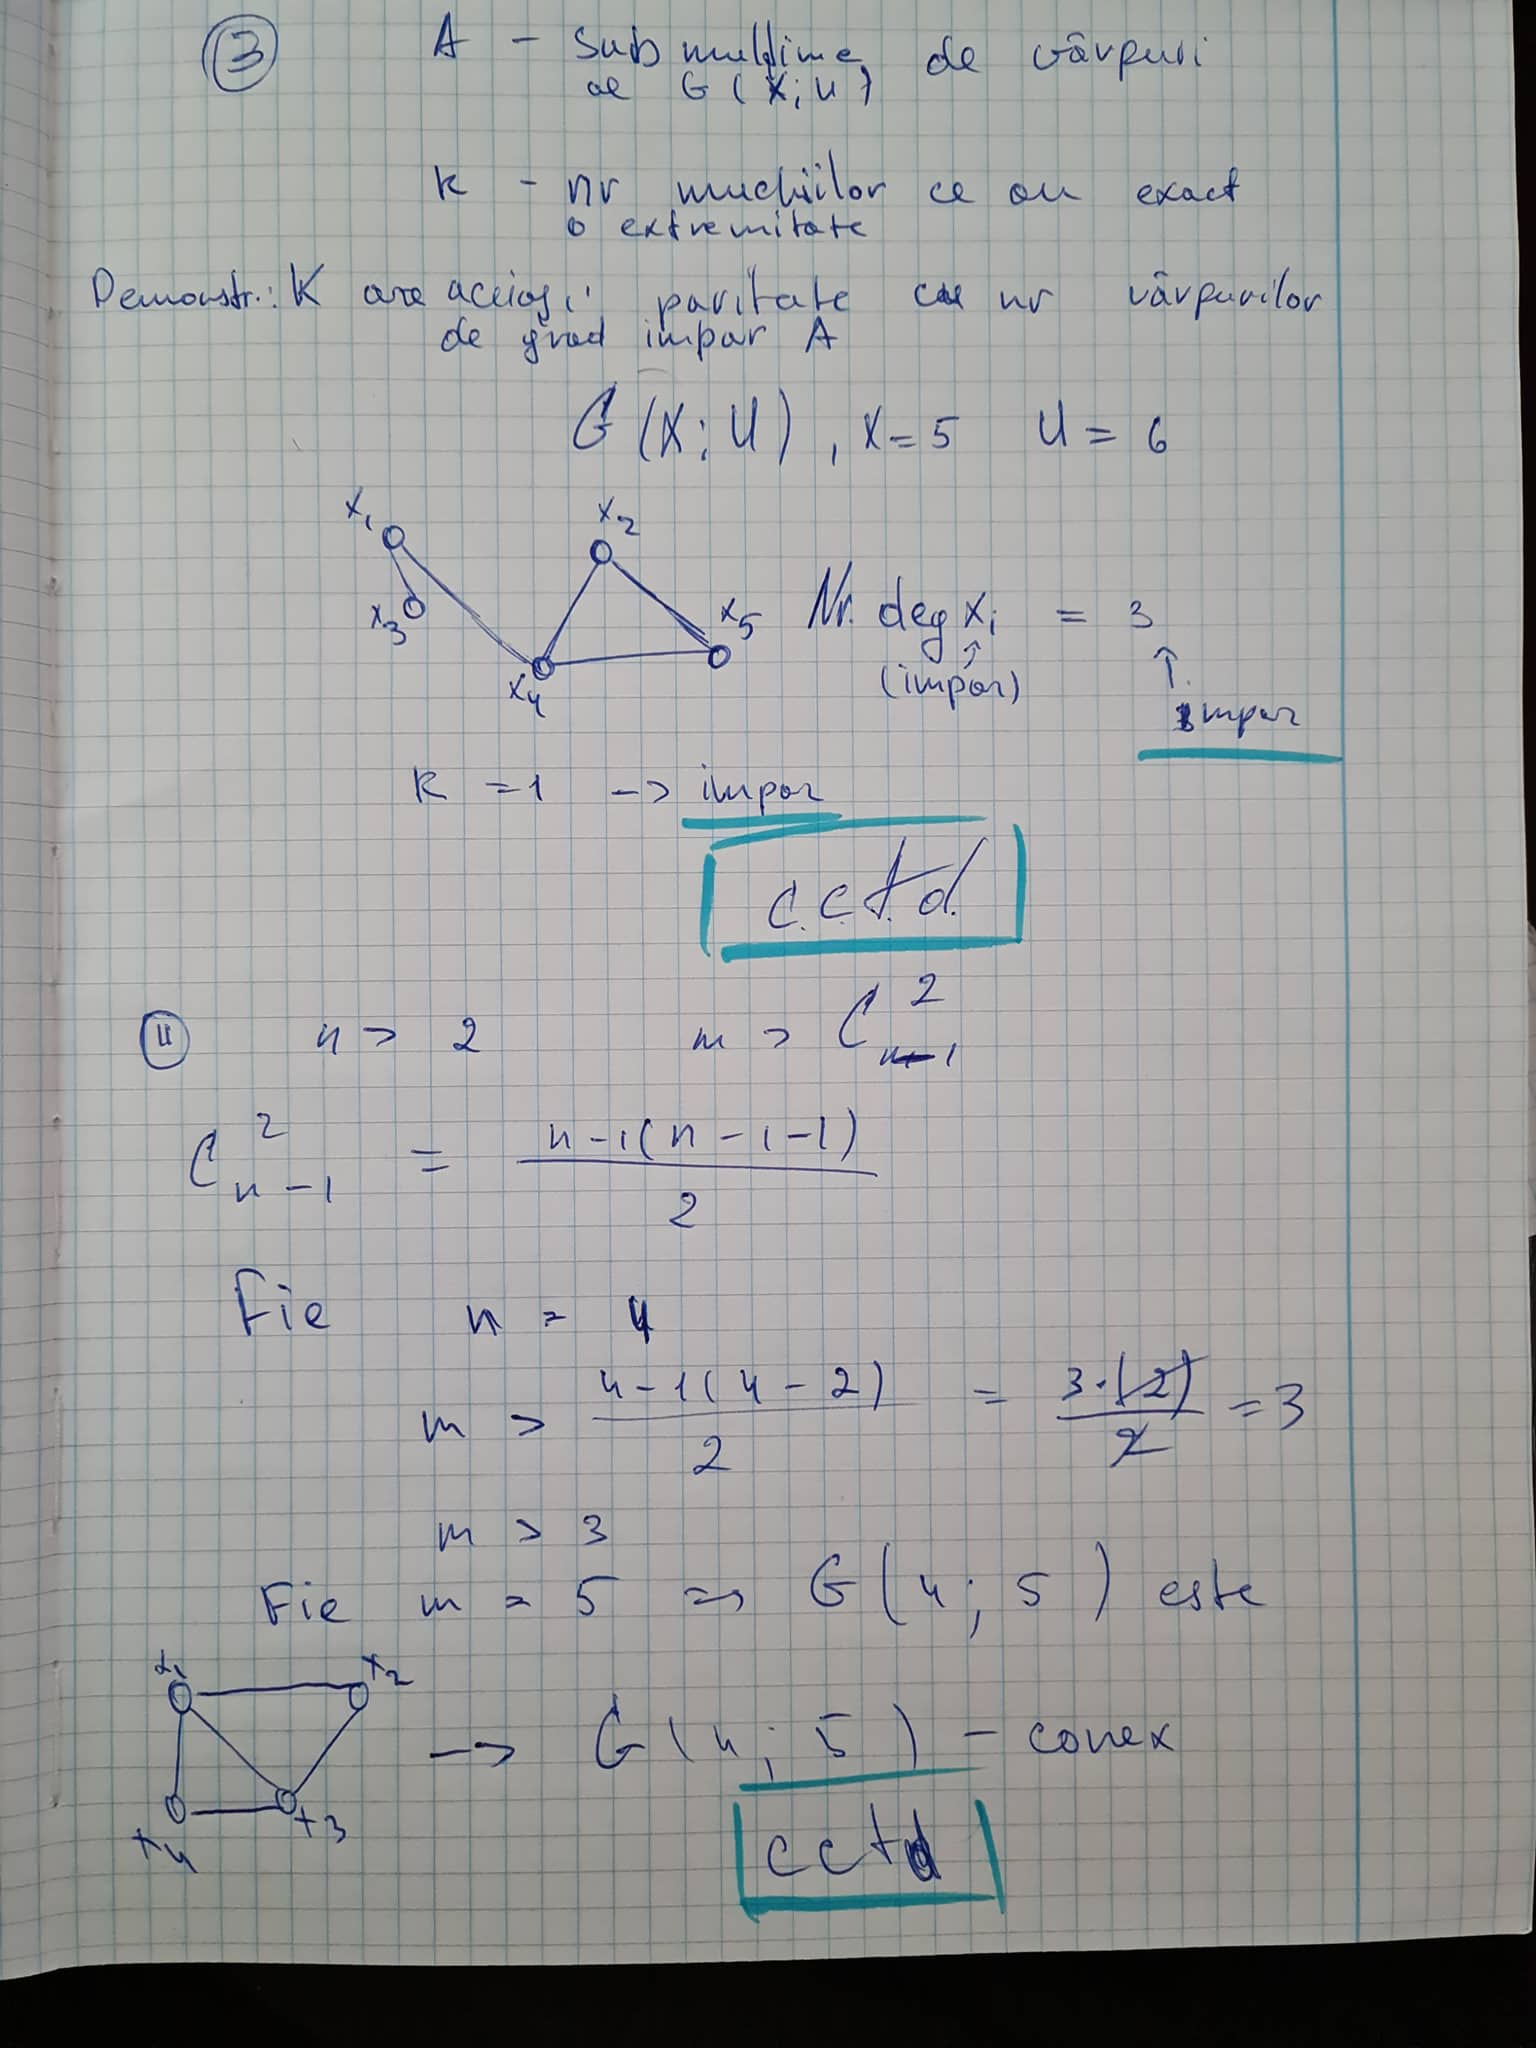 ③ A - Submulțime de vârfuri
al G(X;U)
K - nr muchiilor ce au exact
o extremitate
Demonstr.: K are aceiași paritate cu nr vârfurilor
de grad impar A
G(X;U), X=5 U=6
x1
x2
x3
x5
x4
Nr. deg xi = 3
(impar)
impar
K =1 -> impar
c.c.t.d.
④ n > 2 m > C²n-1
C²n-1 = n-1(n-1-1)/2
Fie n = 4
m > 4-1(4-2)/2 = 3·(2)/2 = 3
m > 3
Fie m = 5 => G(4;5) este
x1 x2
-> G(4;5) - conex
x4 x3
cctd